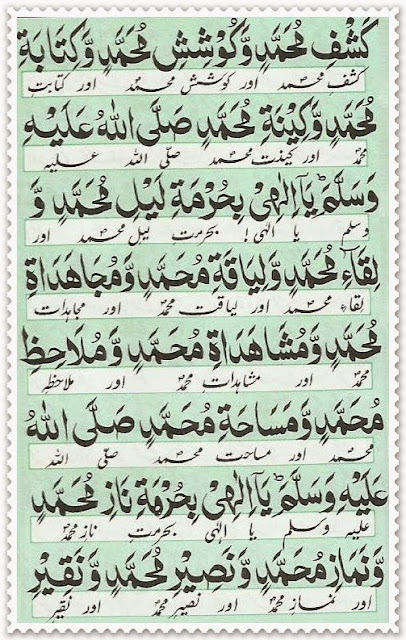 كَشْفِ مُحَمَّدٍ وَّكُوْشِشِ مُحَمَّدٍ وَّكِتَابَةِ
کشف محمد اور کوشش محمد اور کتابت
مُحَمَّدٍ وَّكِيْنَةِ مُحَمَّدٍ صَلَّى اللهُ عَلَيْهِ
محمد اور کینت محمد صلّی اللہ علیہ
وَسَلَّمَ ط يَا اِلٰهِىْ بِحُرْمَةِ لَيْلِ مُحَمَّدٍ وَّ
وسلم یا الٰہی! بحرمت لیل محمد اور
لِقَآءِ مُحَمَّدٍ وَّلِيَاقَةِ مُحَمَّدٍ وَّمُجَاهَدَاةِ
لقاء محمد اور لیاقت محمد اور مجاہدات
مُحَمَّدٍ وَّمُشَاهَدَاةِ مُحَمَّدٍ وَّمُلَاحِظِ
محمد اور مشاہدات محمد اور ملاحظہ
مُحَمَّدٍ وَّمَسَاحَةِ مُحَمَّدٍ صَلَّى اللهُ
محمد اور مساحت محمد صلّی اللہ
عَلَيْهِ وَسَلَّمَ ط يَا اِلٰهِىْ بِحُرْمَةِ نَازِ مُحَمَّدٍ
علیہ وسلم یا الٰہی بحرمت ناز محمد
وَّنَمَازِ مُحَمَّدٍ وَّنَصِيْرِ مُحَمَّدٍ وَّنَقِيْرِ
اور نماز محمد اور نصیر محمد اور نقیر